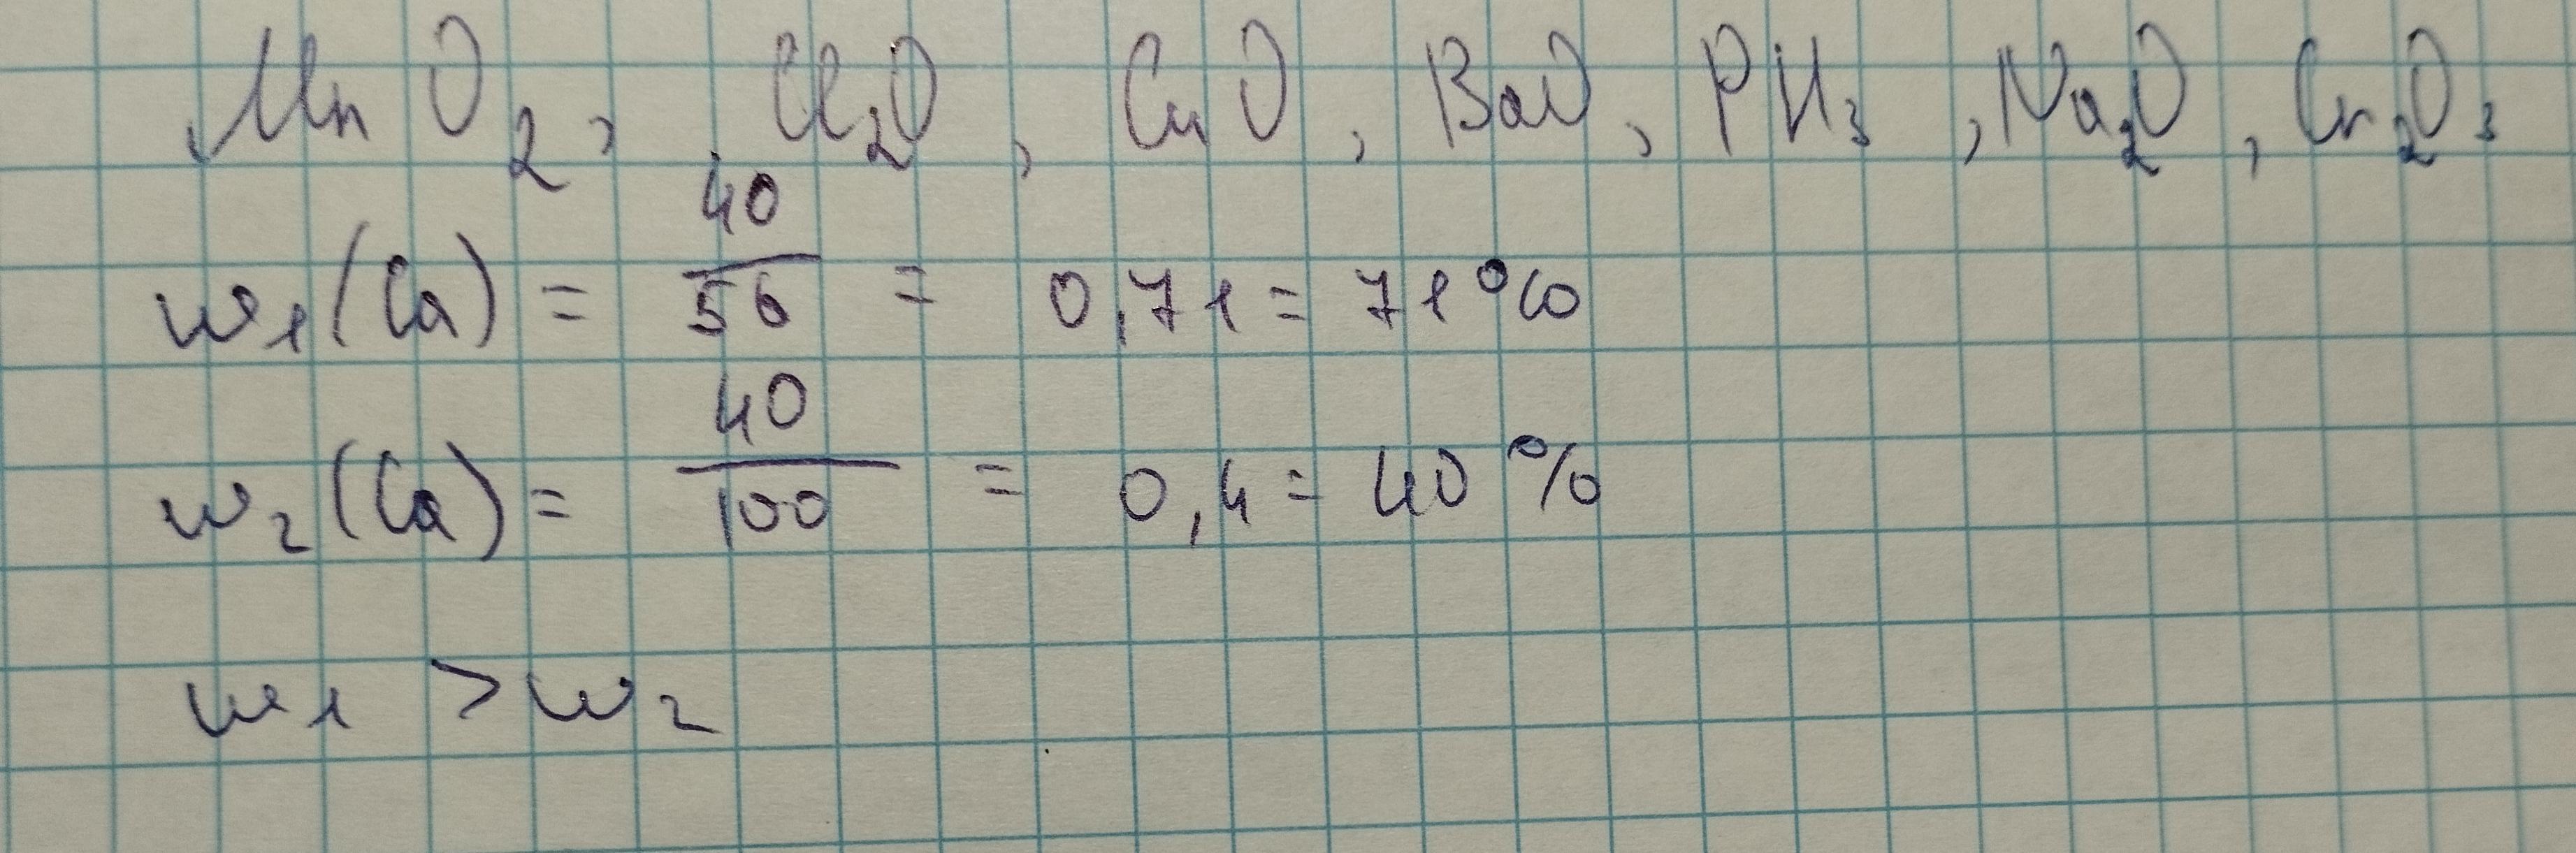 MnO₂, Cl₂O, CuO, BaO, PH₃, Na₂O, Cr₂O₃
w₁(Ca) = 40/56 = 0,71 = 71%
w₂(Ca) = 40/100 = 0,4 = 40%
w₁ > w₂